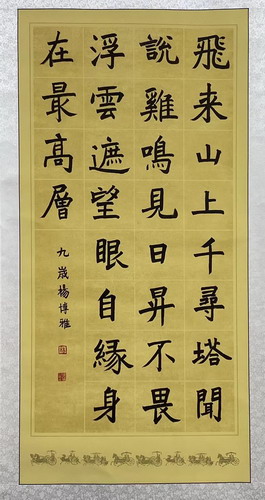 飛来山上千尋塔聞
說雞鳴見日昇不畏
浮雲遮望眼自緣身
在最高層
九歲楊博雅